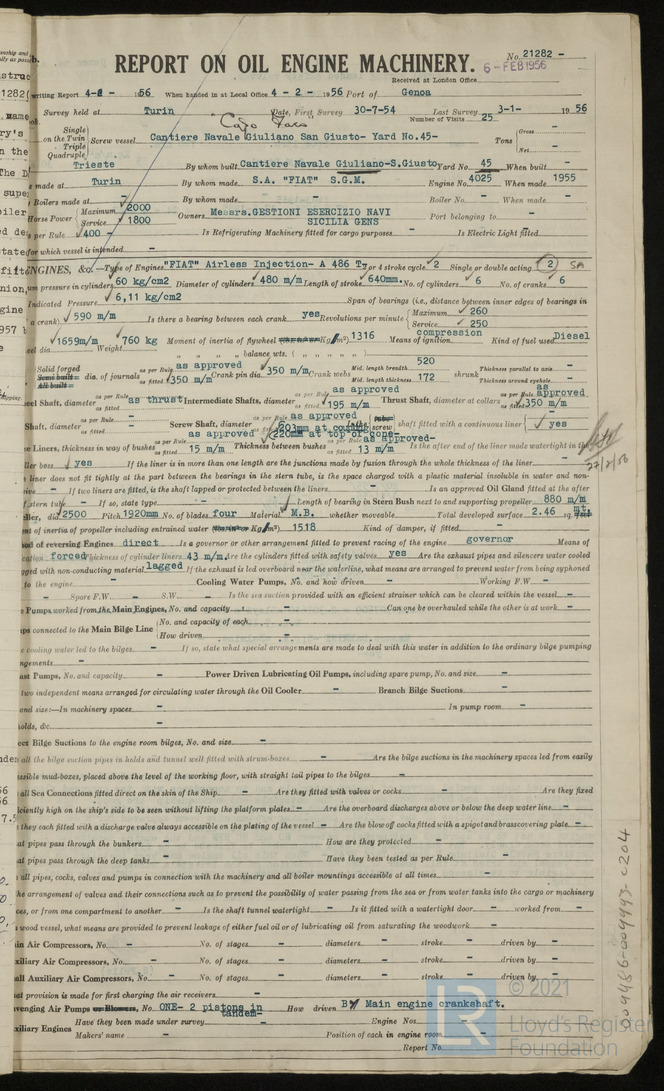 REPORT ON OIL ENGINE MACHINERY.
No. 21282 -
6 - FEB 1956
Received at London Office
writing Report 4-2- 1956 When handed in at Local Office 4 - 2 - 1956 Port of Genoa
Survey held at Turin Date, First Survey 30-7-54 Last Survey 3-1- 1956
Number of Visits 25
Capo Faro
Single
on the Twin Screw vessel Cantiere Navale Giuliano San Giusto- Yard No.45- Tons Gross -
Triple
Quadruple
Net -
Trieste By whom built Cantiere Navale Giuliano-S.Giusto Yard No. 45 When built -
made at Turin By whom made S.A. "FIAT" S.G.M. Engine No. 4025 When made 1955
Boilers made at - By whom made - Boiler No. - When made -
Horse Power Maximum 2000
Service 1800 Owners Messrs.GESTIONI ESERCIZIO NAVI SICILIA GENS Port belonging to -
per Rule 400 - Is Refrigerating Machinery fitted for cargo purposes - Is Electric Light fitted -
for which vessel is intended -
ENGINES, &c. -Type of Engines "FIAT" Airless Injection- A 486 T 2 or 4 stroke cycle 2 Single or double acting 2 SA
pressure in cylinders 60 kg/cm2 Diameter of cylinders 480 m/m Length of stroke 640mm. No. of cylinders 6 No. of cranks 6
Indicated Pressure 6,11 kg/cm2 Span of bearings (i.e., distance between inner edges of bearings in
a crank) 590 m/m Is there a bearing between each crank yes Revolutions per minute Maximum 260
Service 250
1659m/m Weight 760 kg Moment of inertia of flywheel 1316 Means of ignition compression Kind of fuel used Diesel
" " " balance wts. ( " " " )
Solid forged dia. of journals as per Rule as approved
as fitted 350 m/m Crank pin dia. 350 m/m Crank webs Mid. length breadth 520
Mid. length thickness 172 shrunk Thickness parallel to axis -
Thickness around eyehole -
Shaft, diameter as per Rule as thrust
as fitted Intermediate Shafts, diameter as per Rule as approved
as fitted 195 m/m Thrust Shaft, diameter at collars as per Rule as approved
as fitted 350 m/m
Shaft, diameter as per Rule -
as fitted - Screw Shaft, diameter as per Rule as approved
as fitted 203mm at coupling
220mm at top of cone- shaft fitted with a continuous liner yes
Liners, thickness in way of bushes as per Rule as approved
as fitted 15 m/m Thickness between bushes as per Rule as approved-
as fitted 13 m/m Is the after end of the liner made watertight in the
27/2/56
boss yes If the liner is in more than one length are the junctions made by fusion through the whole thickness of the liner -
liner does not fit tightly at the part between the bearings in the stern tube, is the space charged with a plastic material insoluble in water and non-
- If two liners are fitted, is the shaft lapped or protected between the liners - Is an approved Oil Gland fitted at the after
stern tube - If so, state type - Length of bearing in Stern Bush next to and supporting propeller 880 m/m
dia 2500 Pitch 1920mm No. of blades four Material M.B. whether moveable - Total developed surface 2.46 sq. mt.
of inertia of propeller including entrained water 1518 Kind of damper, if fitted -
of reversing Engines direct Is a governor or other arrangement fitted to prevent racing of the engine governor Means of
forced Thickness of cylinder liners 43 m/m. Are the cylinders fitted with safety valves yes Are the exhaust pipes and silencers water cooled
with non-conducting material lagged If the exhaust is led overboard near the waterline, what means are arranged to prevent water from being syphoned
to the engine - Cooling Water Pumps, No. and how driven - Working F.W. -
Spare F.W. - S.W. - Is the sea suction provided with an efficient strainer which can be cleared within the vessel -
Pumps worked from the Main Engines, No. and capacity - Can one be overhauled while the other is at work -
connected to the Main Bilge Line No. and capacity of each -
How driven -
cooling water led to the bilges - If so, state what special arrangements are made to deal with this water in addition to the ordinary bilge pumping
arrangements -
Pumps, No. and capacity - Power Driven Lubricating Oil Pumps, including spare pump, No. and size -
two independent means arranged for circulating water through the Oil Cooler - Branch Bilge Suctions -
and size:-In machinery spaces - In pump room -
holds, &c. -
Bilge Suctions to the engine room bilges, No. and size -
all the bilge suction pipes in holds and tunnel well fitted with strum-boxes - Are the bilge suctions in the machinery spaces led from easily
mud-boxes, placed above the level of the working floor, with straight tail pipes to the bilges -
all Sea Connections fitted direct on the skin of the Ship - Are they fitted with valves or cocks - Are they fixed
high on the ship's side to be seen without lifting the platform plates - Are the overboard discharges above or below the deep water line -
they each fitted with a discharge valve always accessible on the plating of the vessel - Are the blow off cocks fitted with a spigot and brass covering plate -
pipes pass through the bunkers - How are they protected -
pipes pass through the deep tanks - Have they been tested as per Rule -
all pipes, cocks, valves and pumps in connection with the machinery and all boiler mountings accessible at all times -
the arrangement of valves and their connections such as to prevent the possibility of water passing from the sea or from water tanks into the cargo or machinery
or from one compartment to another - Is the shaft tunnel watertight - Is it fitted with a watertight door - worked from -
wood vessel, what means are provided to prevent leakage of either fuel oil or of lubricating oil from saturating the woodwork -
Air Compressors, No. - No. of stages - diameters - stroke - driven by -
Auxiliary Air Compressors, No. - No. of stages - diameters - stroke - driven by -
Small Auxiliary Air Compressors, No. - No. of stages - diameters - stroke - driven by -
provision is made for first charging the air receivers -
Scavenging Air Pumps or Blowers, No. ONE- 2 pistons in tandem- How driven By Main engine crankshaft.
Auxiliary Engines Have they been made under survey - Engine Nos -
Makers' name - Position of each in engine room -
Report No. -
009486-009493-0204
© 2021
LR
Lloyd's Register
Foundation